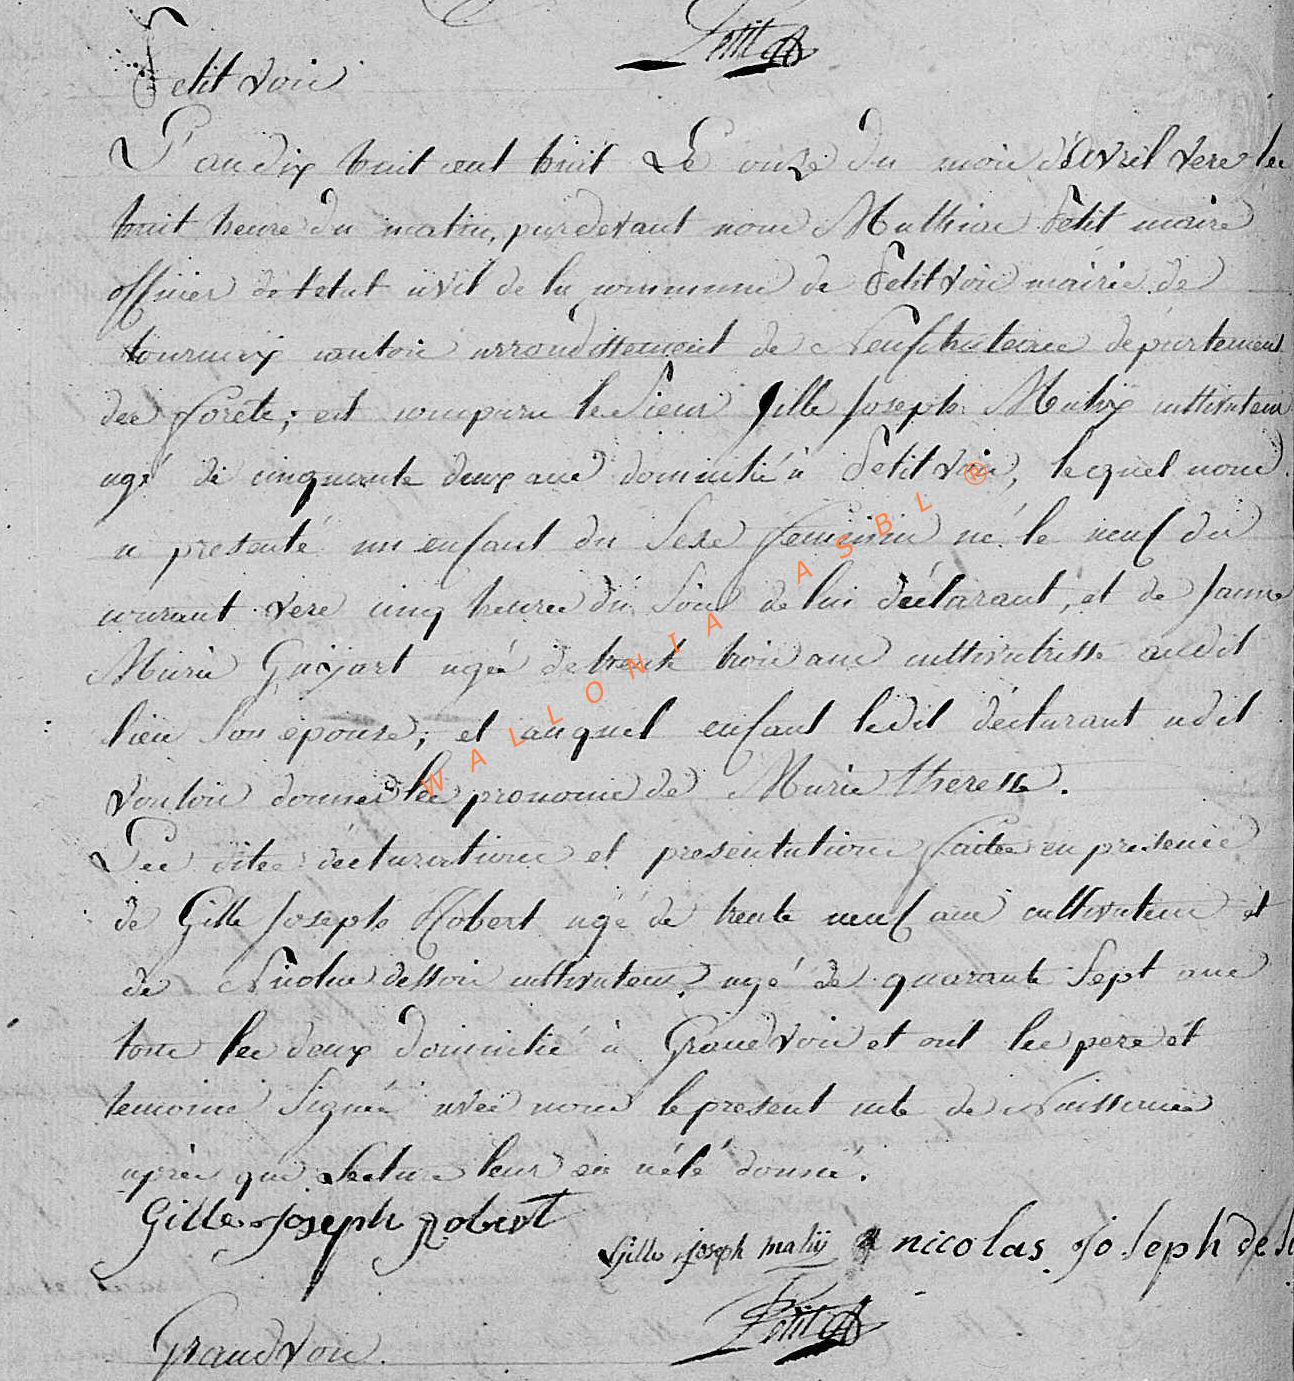 Petit
Petit voir
L'an dix huit cent huit Le onze du mois d'Avril vers les
huit heure du matin, pardevant nous Mathias Petit maire
officier de l'etat civil de la commune de Petitvoir mairie de
tournay canton arrondissement de Neufchateau département
des Forêts; est comparu le Sieur Gille Joseph Mahy cultivateur
agé de cinquante deux ans domicilié à Petitvoir, lequel nous
a presenté un enfant du Sexe feminin né le neuf du
courant vers cinq heures du Soir de lui déclarant, et de Janne
Marie Guiyart agée de trente trois ans cultivatrisse audit
lieu Son epouse; et auquel enfant ledit déclarant adit
vouloir donner les pronoms de Marie theresse.
Les dites déclarations et presentations faites en presence
de Gille Joseph Robert agé de trente neuf ans cultivateur et
de Nicolas dessoi cultivateur, agé de quarante Sept ans
tous les deux domicilié à Grandvoir et ont les pere et
temoins Signés avec nous le present acte de Naissance
après que Lecture leur en a été donné.
Gille Joseph Robert
Gille joseph mahÿ nicolas Joseph de
Petit
Grandvoir.
WALLONIA ASBL ®